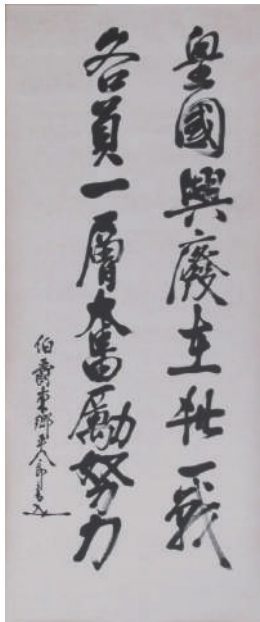 皇國興廢在此一戰
各員一層奮勵努力
伯爵東郷平八郎書